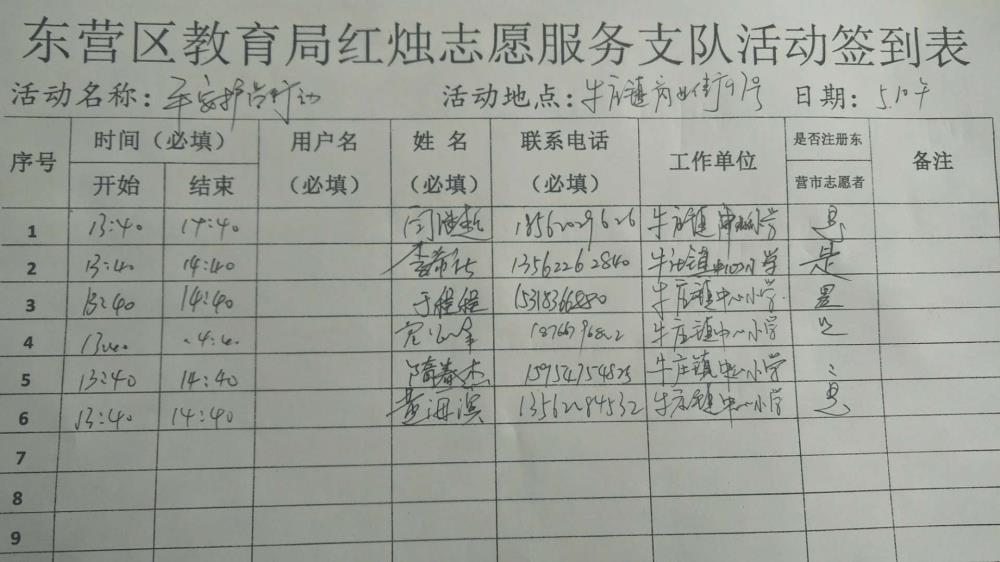 东营区教育局红烛志愿服务支队活动签到表
活动名称：平安护学行动 活动地点：牛庄镇商业街97号 日期：5.10下
序号 时间（必填） 用户名（必填） 姓名（必填） 联系电话（必填） 工作单位 是否注册东营市志愿者 备注
开始 结束
1 13:40 14:40 牛庄镇中心小学 是
2 13:40 14:40 13562262840 牛庄镇中心小学 是
3 13:40 14:40 于程程 15318366880 牛庄镇中心小学 是
4 牛庄镇中心小学
5 13:40 14:40 隋春杰 15954754825 牛庄镇中心小学
6 13:40 14:40 13562294532 牛庄镇中心小学 是
7
8
9